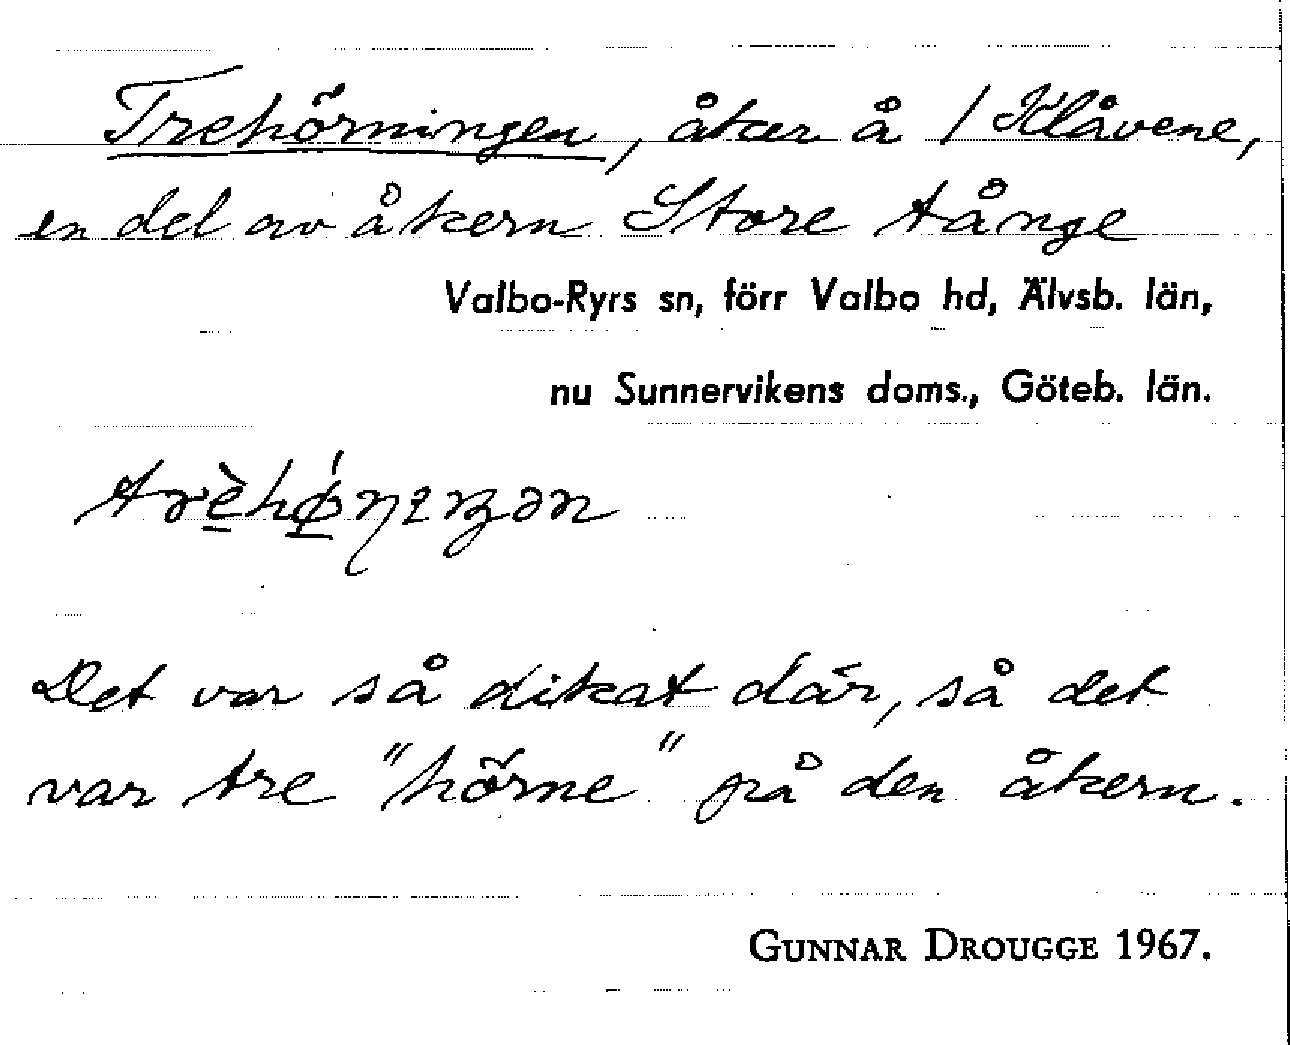 Trehörningen, åker å 1 Klåvene,
en del av åkern Store tånge
Valbo-Ryrs sn, förr Valbo hd, Älvsb. län,
nu Sunnervikens doms., Göteb. län.
Det var så dikat där, så det
var tre "hörne" på den åkern.
GUNNAR DROUGGE 1967.